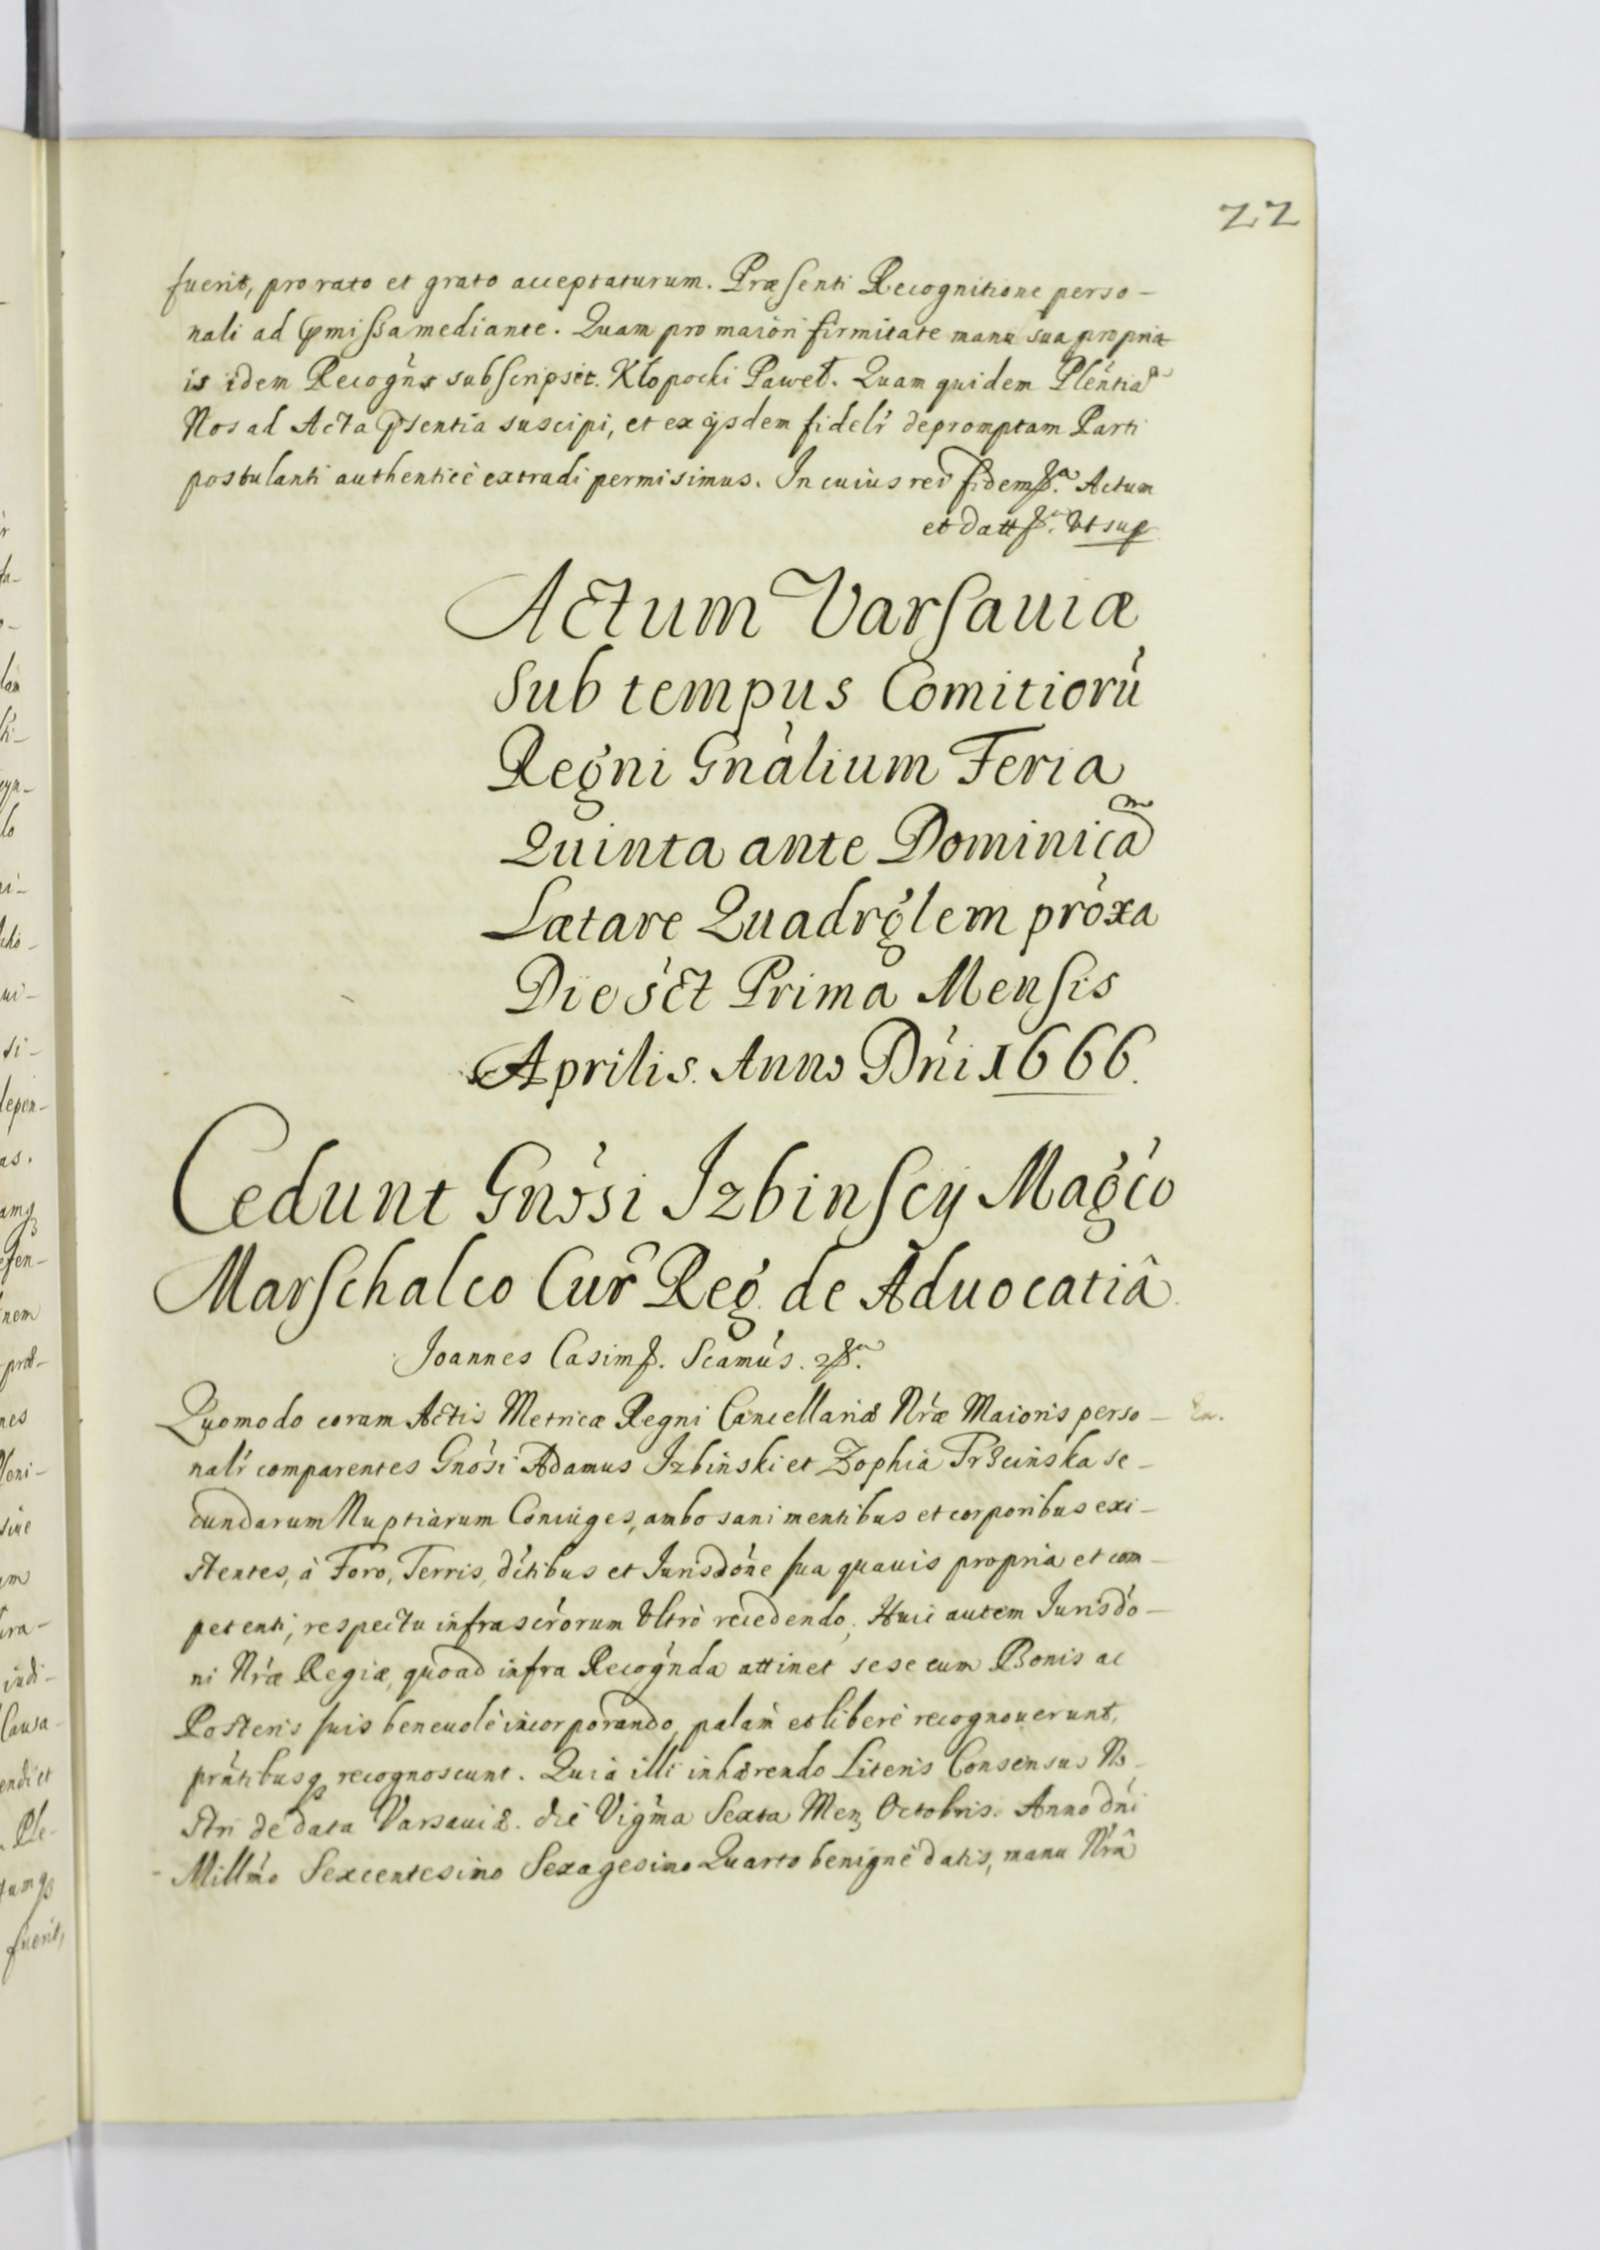 22
fuerit, pro rato et grato acceptaturum. Præsenti Recognitione perso-
nali ad pmissa mediante. Quam pro maiori firmitate manu sua propria
is idem Recogns subscripsit. Kłopocki Paweł. Quam quidem Plentia
Nos ad Acta psentia suscipi, et ex ijsdem fidelr depromptam Parti
postulanti authenticè extradi permisimus. In cuius rei fidem Actum
et datt Vt sup
Actum Varsauiæ
Sub tempus Comitiorù
Regni Gnàlium Feria
Quinta ante Dominicam
Lætare Quadrglem pròxa
Die sct Prima Mensis
Aprilis. Anno Dni 1666.
Cedunt Gnosi Izbinscij Magco
Marschalco Cur Reg. de Aduocatiâ
Joannes Casim. Scamus.
Quomodo coram Actis Metricæ Regni Cancellariæ Nræ Maioris perso-
nalr comparentes Gnosi Adamus Izbiński et Zophia Trzcińska se-
cundarum Nuptiarum Coniuges, ambo sani mentibus et corporibus exi-
stentes, à Foro, Terris, dctibus et Jurisdone sua quauis propria et com-
petenti, respectu infrascrorum Vltrò recedendo, Huic autem Jurisdo-
ni Nræ Regiæ, quoad infra Recognda attinet sese cum Bonis ac
Posteris suis beneuolè incorporando, palàm et liberè recognouerunt,
prntibusq recognoscunt. Quia illi inhærendo Literis Consensus No-
stri de data Varsauiæ. die Vigma Sexta Men Octobris. Anno dni
Millmo Sexcentesimo Sexagesimo Quarto benignè datis, manu Nrâ